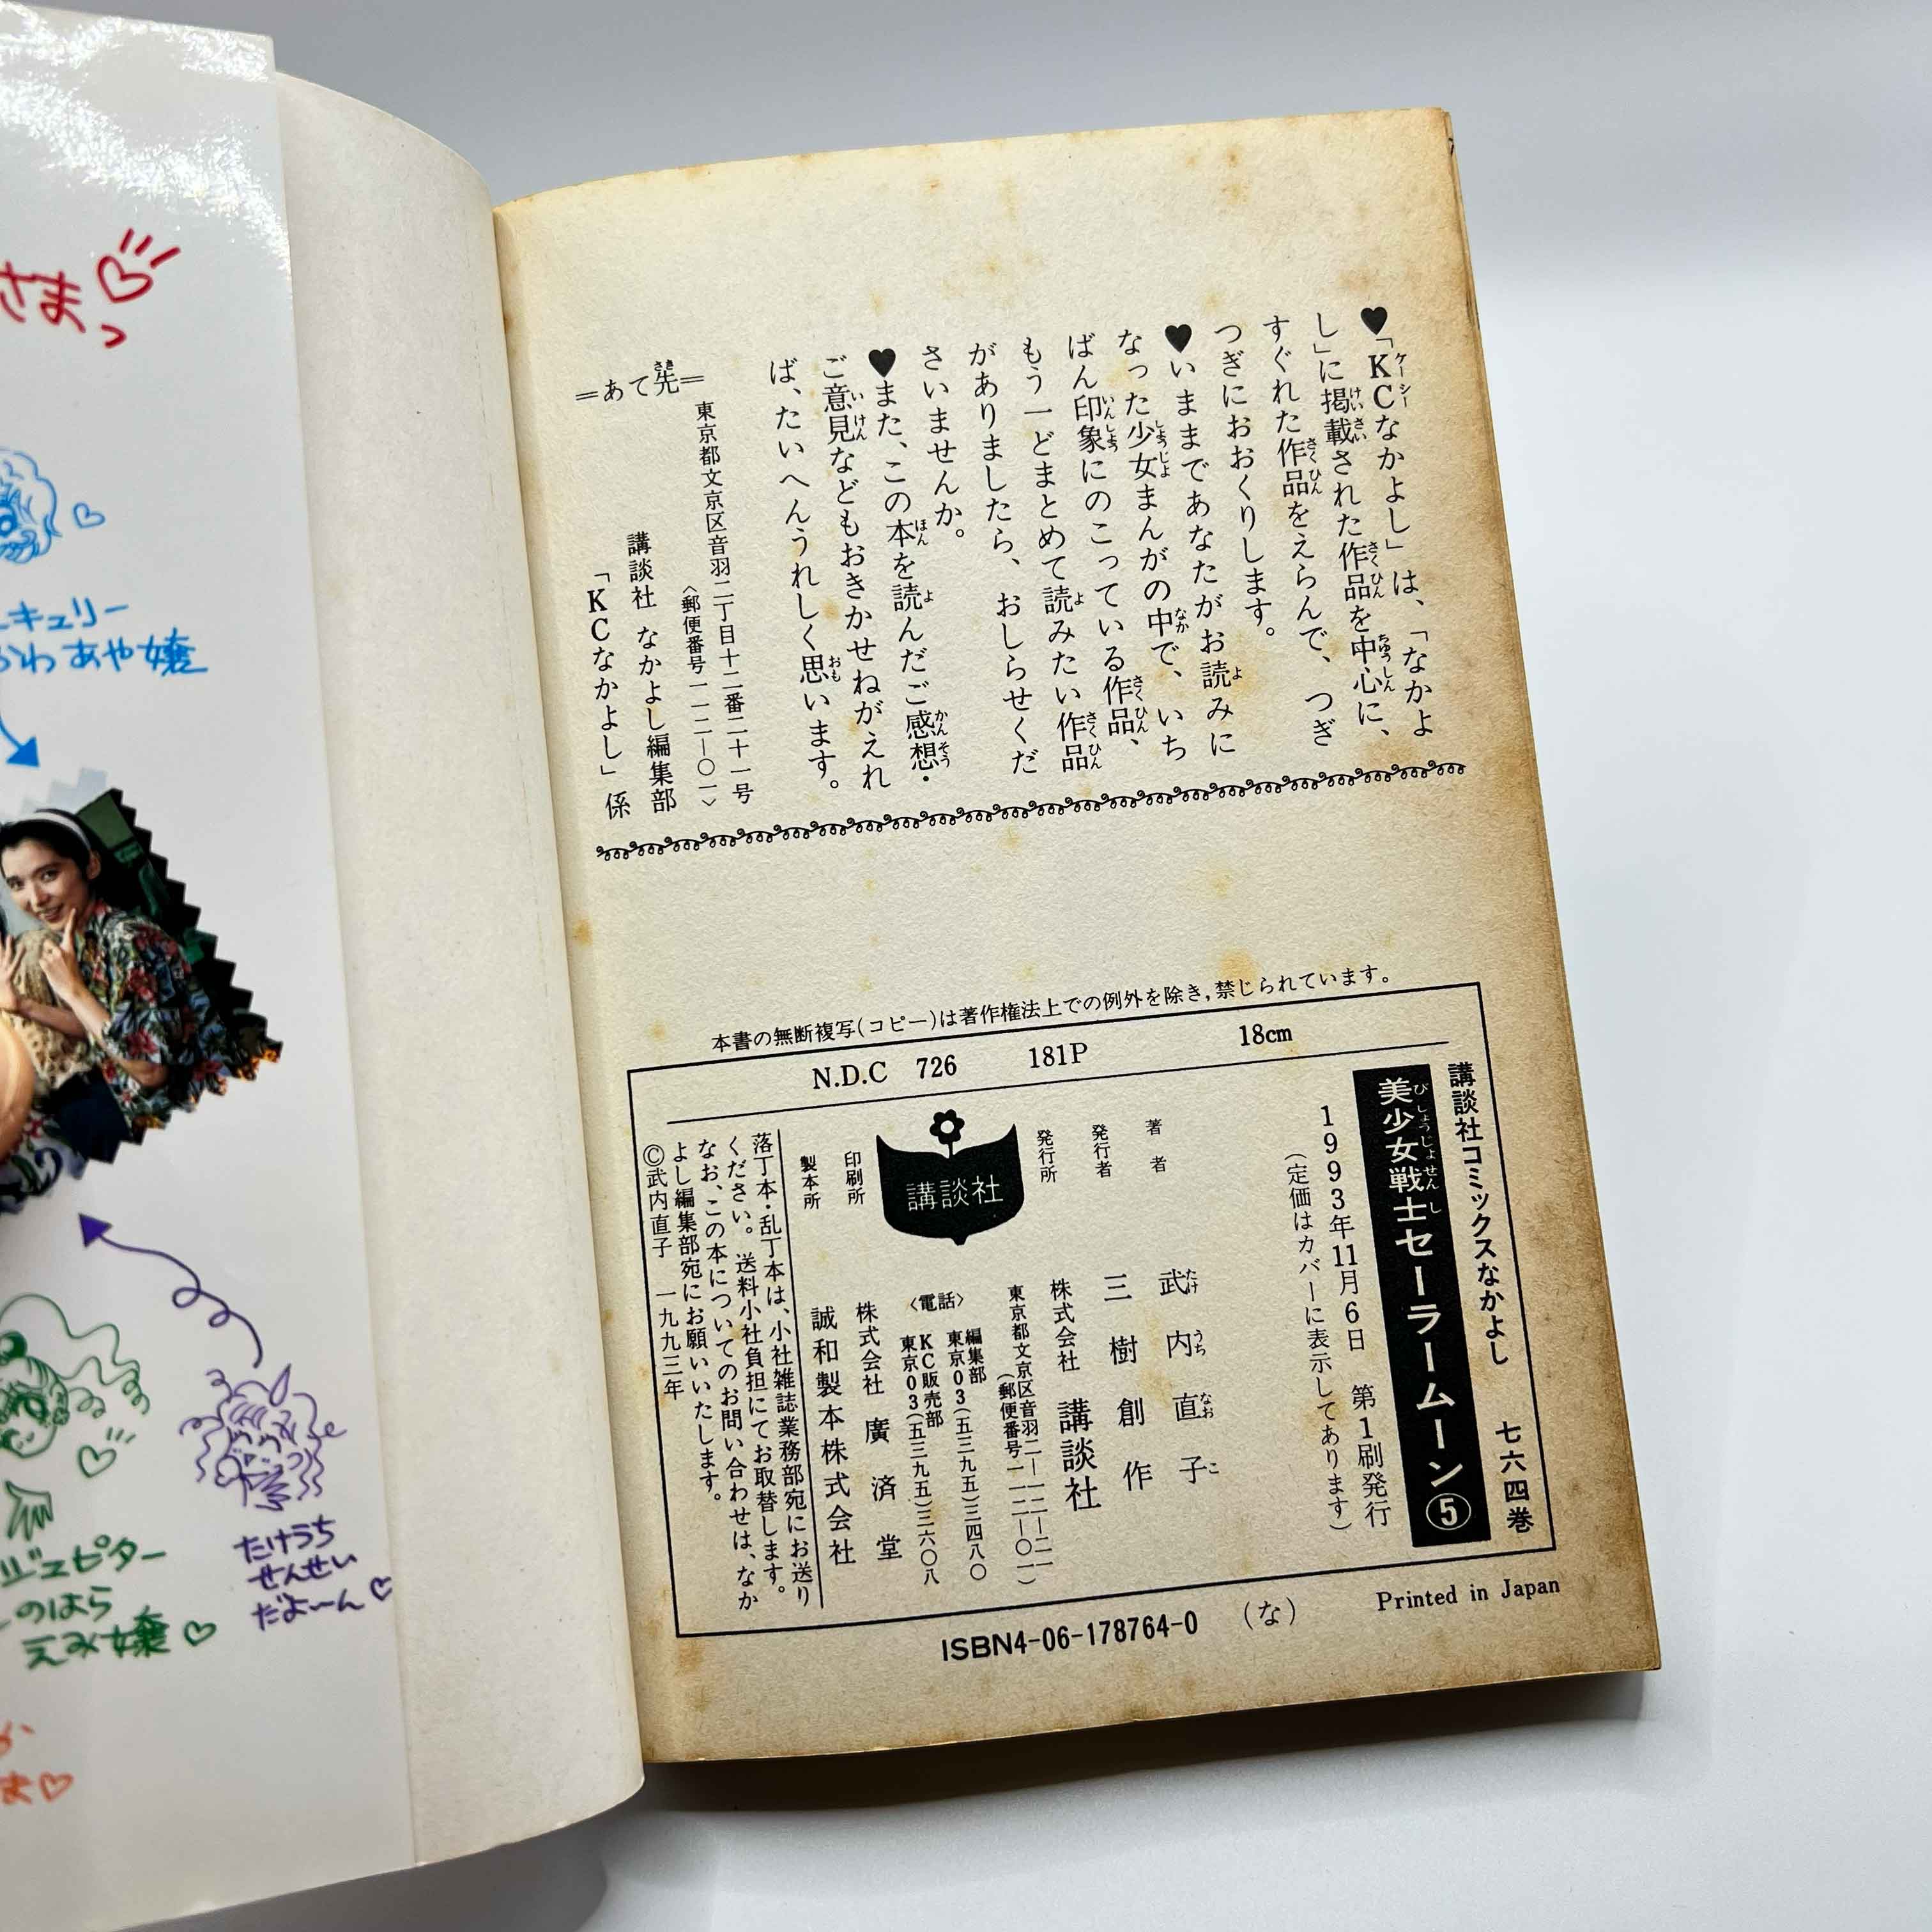 さまっ
キュリー
かわ あや嬢
ジュピター
のはら
えみ嬢
たけうち
せんせい
だよーん
♥「KCなかよし」は、「なかよ
し」に掲載された作品を中心に、
すぐれた作品をえらんで、つぎ
つぎにおおくりします。
♥いままであなたがお読みに
なった少女まんがの中で、いち
ばん印象にのこっている作品、
もう一どまとめて読みたい作品
がありましたら、おしらせくだ
さいませんか。
♥また、この本を読んだご感想・
ご意見などもおきかせねがえれ
ば、たいへんうれしく思います。
=あて先=
東京都文京区音羽二丁目十二番二十一号
〈郵便番号一一二―〇一〉
講談社 なかよし編集部
「KCなかよし」係
本書の無断複写(コピー)は著作権法上での例外を除き,禁じられています。
N.D.C 726 181P 18cm
講談社コミックスなかよし 七六四巻
美少女戦士セーラームーン⑤
1993年11月6日 第1刷発行
(定価はカバーに表示してあります)
著者 武内直子
発行者 三樹創作
発行所 株式会社 講談社
東京都文京区音羽二―一二―二一
(郵便番号一一二―〇一)
〈電話〉 編集部 東京03(五三九五)三四八〇
KC販売部 東京03(五三九五)三六〇八
講談社
印刷所 株式会社 廣済堂
製本所 誠和製本株式会社
落丁本・乱丁本は、小社雑誌業務部宛にお送り
ください。送料小社負担にてお取替します。
なお、この本についてのお問い合わせは、なか
よし編集部宛にお願いいたします。
©武内直子 一九九三年
ISBN4-06-178764-0 (な)
Printed in Japan